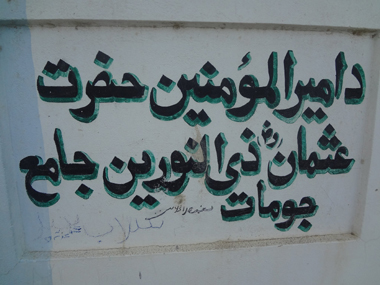 دامیرالمؤمنین حضرت
عثمان رض ذی النورین جامع
جومات